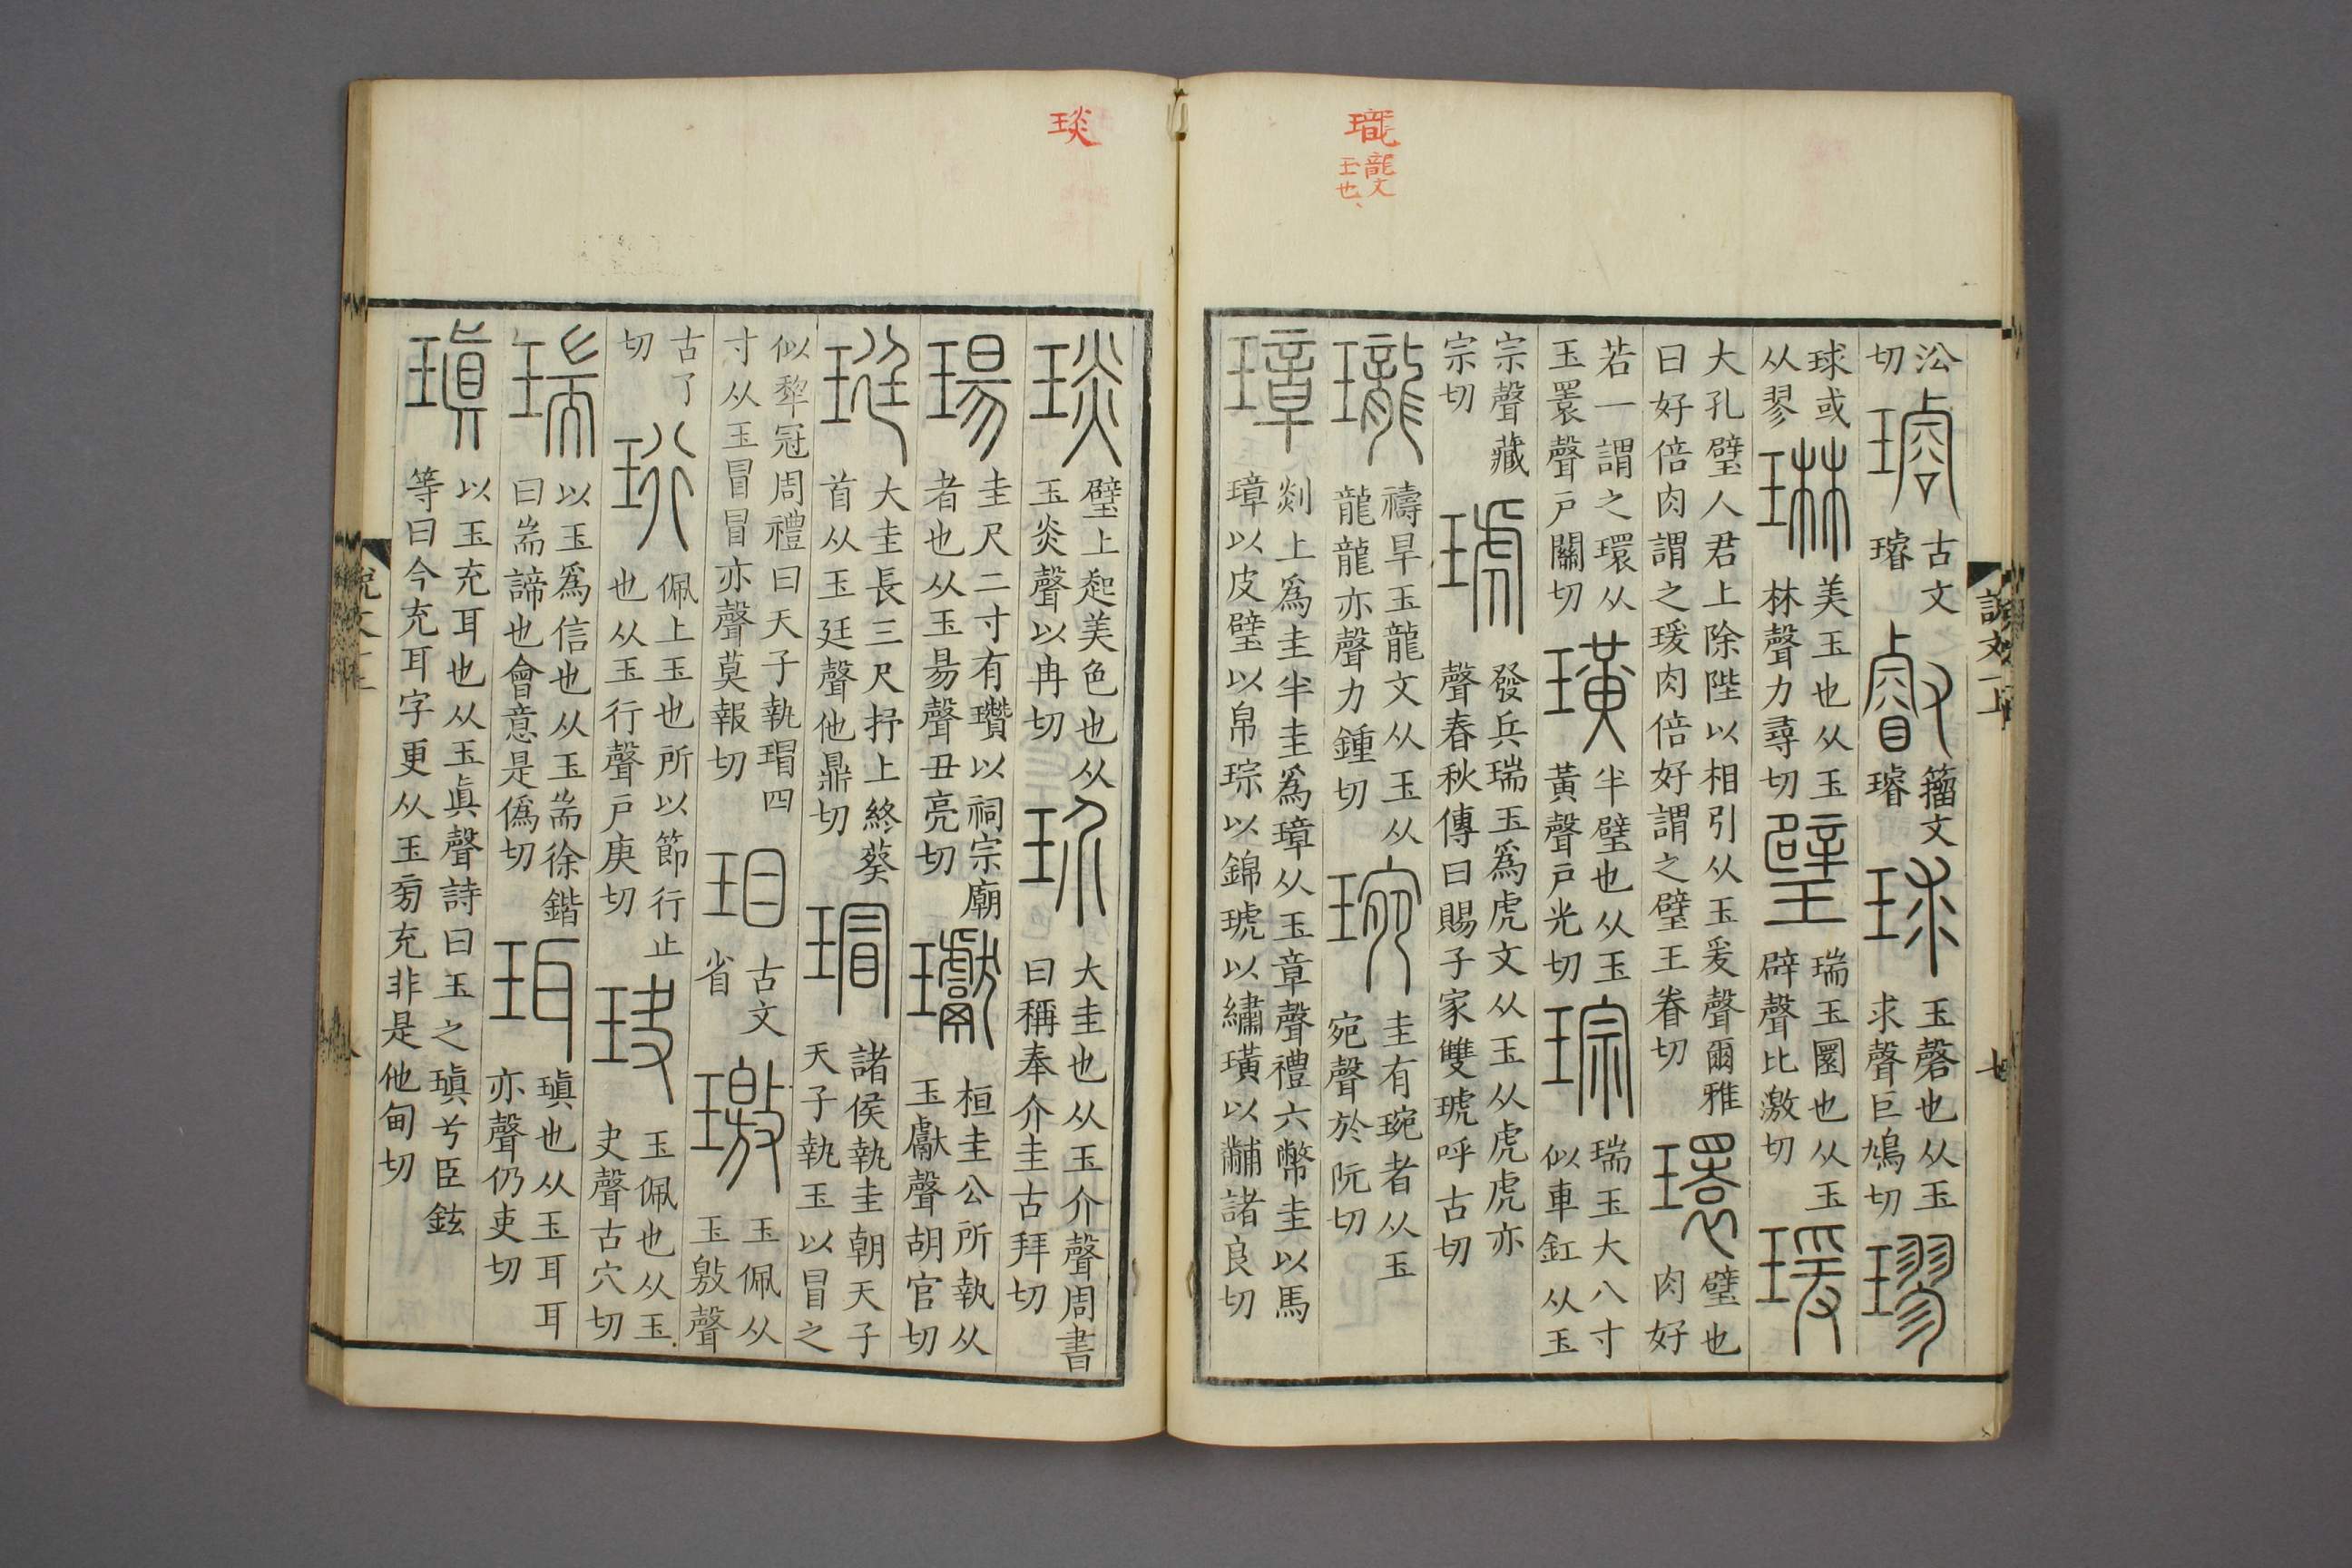 瓏
龍文
玉也
沿切 𤪎 古文璿 叡 籒文璿 球 玉磬也从玉求聲巨鳩切 璆
球或从翏 琳 美玉也从玉林聲力尋切 璧 瑞玉圜也从玉辟聲比激切 瑗
大孔璧人君上除陛以相引从玉爰聲爾雅曰好倍肉謂之瑗肉倍好謂之璧王眷切 環 璧也肉好
若一謂之環从玉睘聲戶關切 璜 半璧也从玉黃聲戶光切 琮 瑞玉大八寸似車釭从玉
宗聲藏宗切 琥 發兵瑞玉爲虎文从玉从虎虎亦聲春秋傳曰賜子家雙琥呼古切
瓏 禱旱玉龍文从玉从龍龍亦聲力鍾切 琬 圭有琬者从玉宛聲於阮切
璋 剡上爲圭半圭爲璋从玉章聲禮六幣圭以馬璋以皮璧以帛琮以錦琥以繡璜以黼諸良切
說文一上
七
琰
琰 璧上起美色也从玉炎聲以冉切 玠 大圭也从玉介聲周書曰稱奉介圭古拜切
瑒 圭尺二寸有瓚以祠宗廟者也从玉昜聲丑亮切 瓛 桓圭公所執从玉獻聲胡官切
珽 大圭長三尺抒上終葵首从玉廷聲他鼎切 瑁 諸侯執圭朝天子天子執玉以冒之
似犂冠周禮曰天子執瑁四寸从玉冒冒亦聲莫報切 玥 古文省 璬 玉佩从玉敫聲
古了切 珩 佩上玉也所以節行止也从玉行聲戶庚切 玦 玉佩也从玉夬聲古穴切
瑞 以玉爲信也从玉耑徐鍇曰耑諦也會意是僞切 珥 瑱也从玉耳耳亦聲仍吏切
瑱 以玉充耳也从玉眞聲詩曰玉之瑱兮臣鉉等曰今充耳字更从玉旁充非是他甸切
說文一上